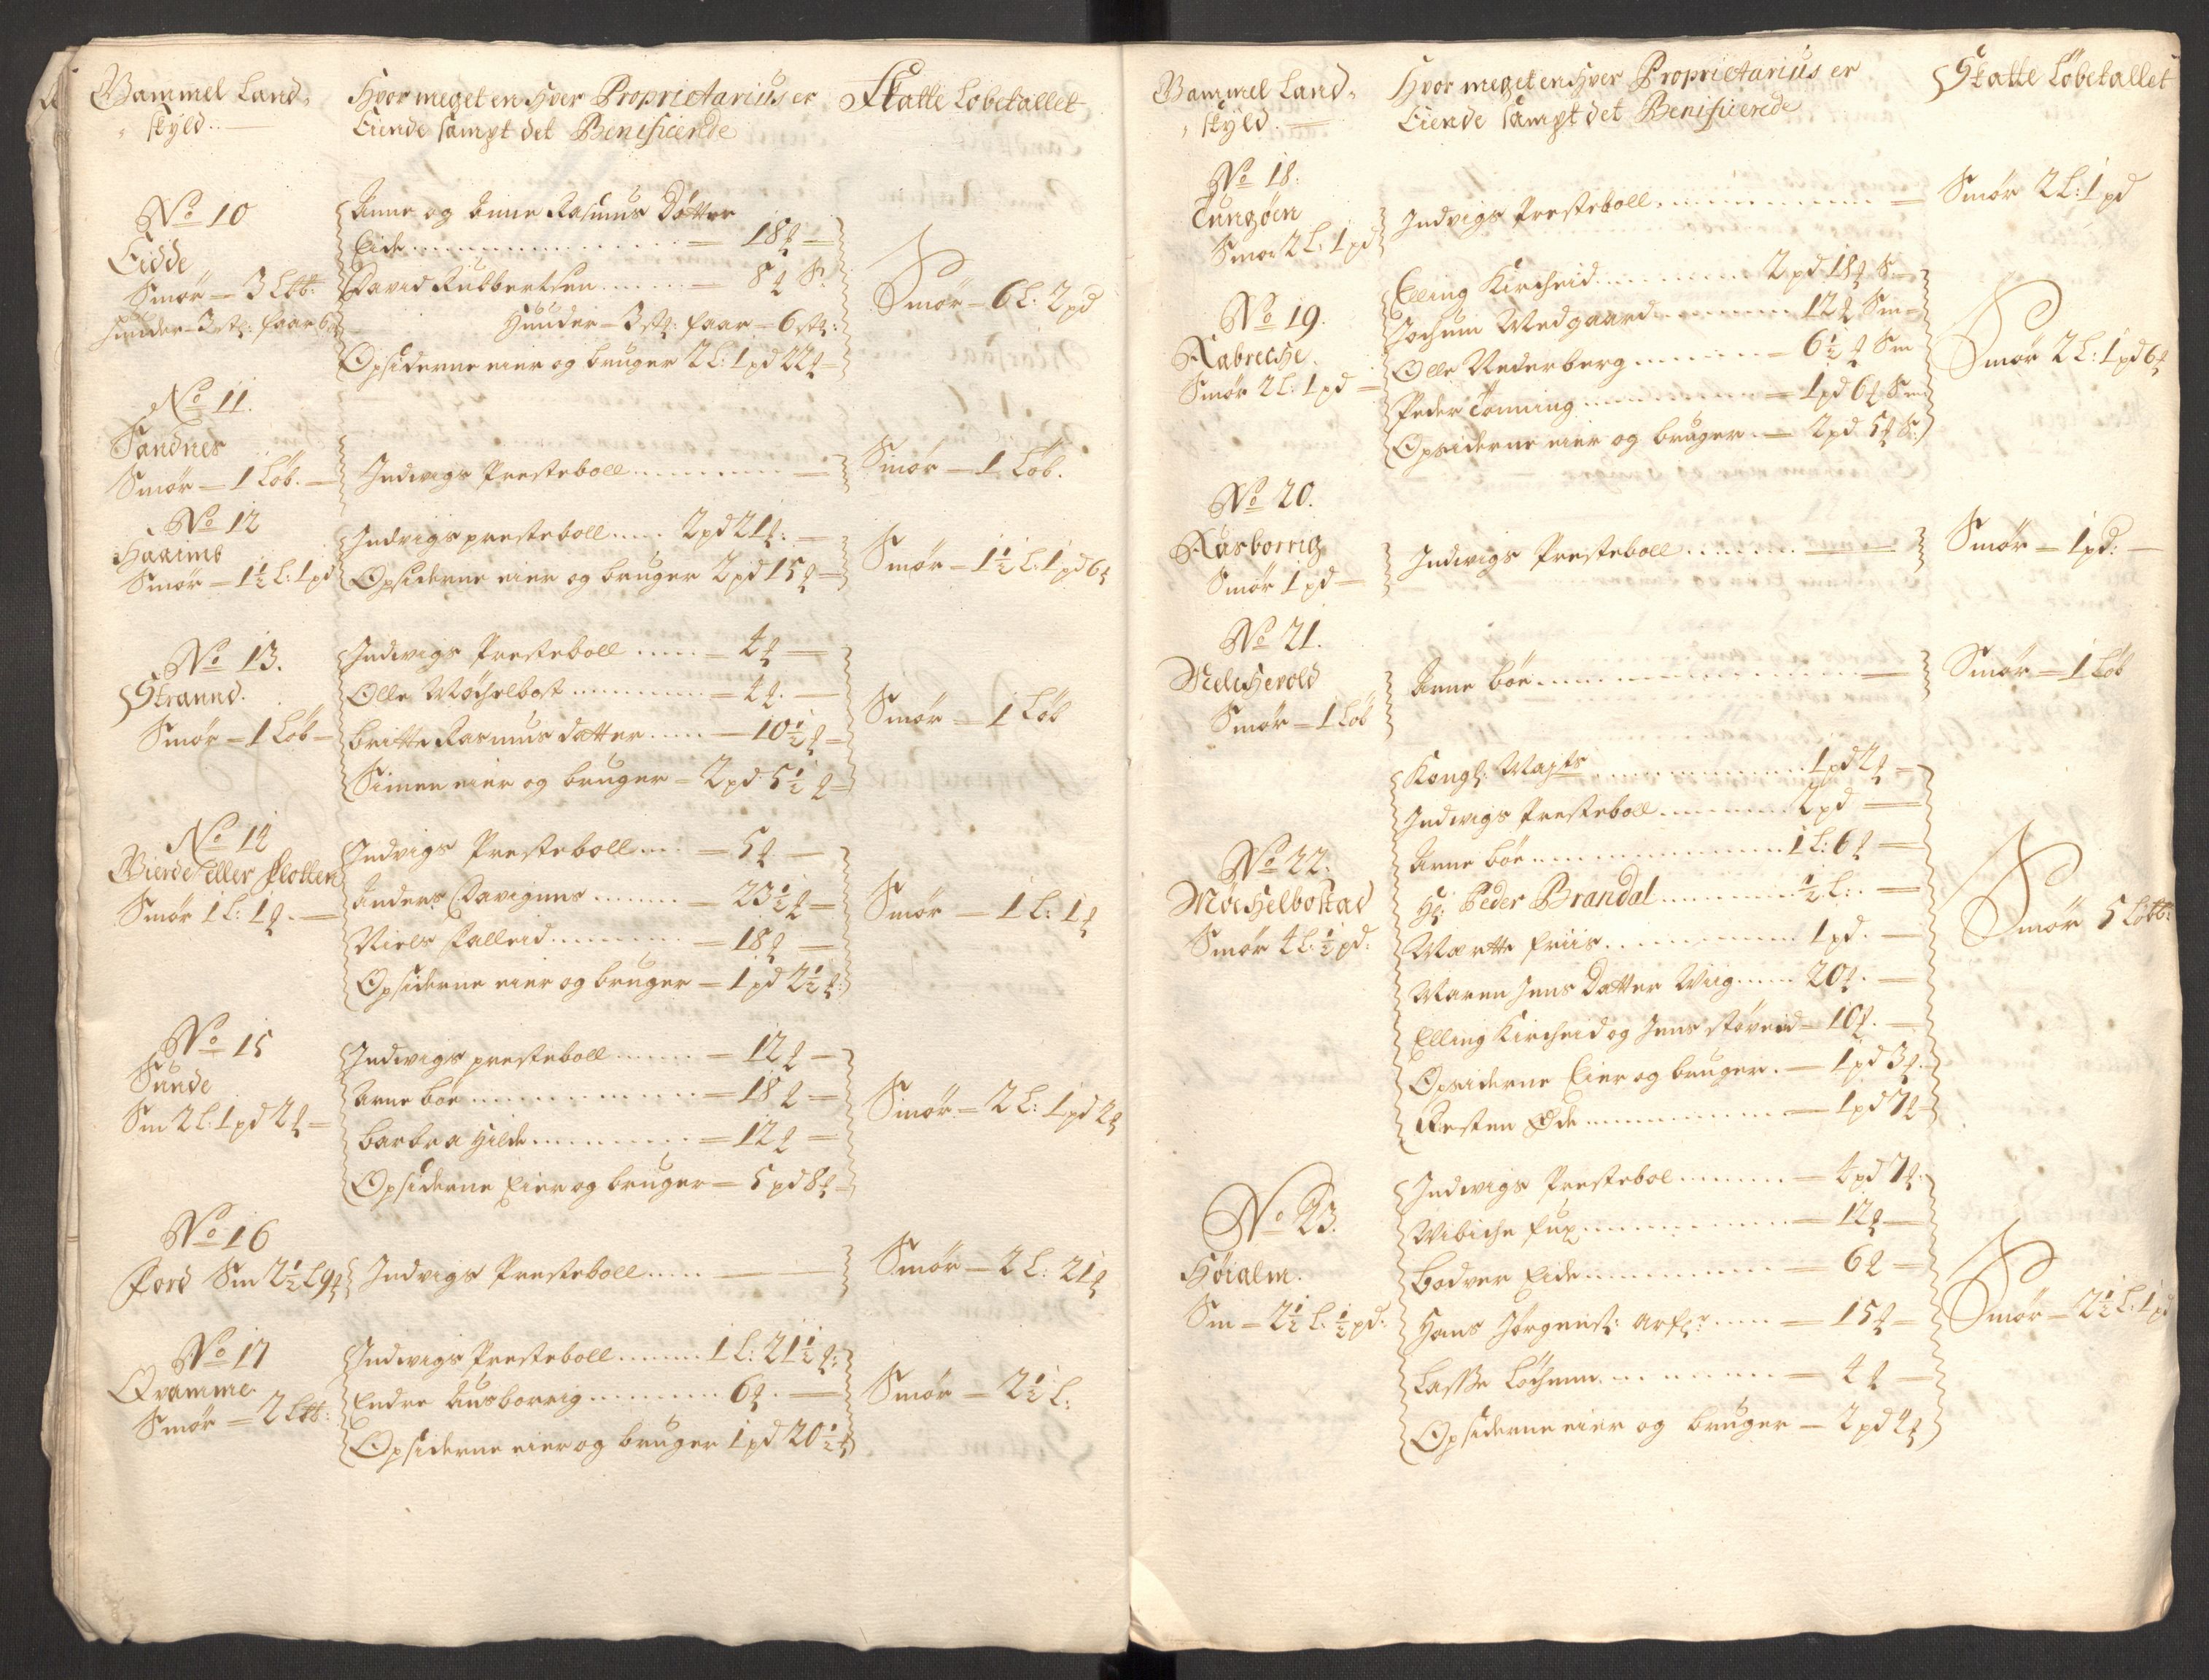 Gammel Land-
skyld.
Hvor meget en Hver Proprietarius er
Eiende sampt det Benificerede
Skatte Løbetallet
No 10
Eidde
Smør - 3 Løb:
Huuder - 3 stk: faar 6
Anne og Anne Rasmus Døtter
Eide 18 ℔
David Rubbertsen 8 ℔ S:
Huuder - 3 stk: faar - 6 stk:
Opsiderne eier og bruger 2 L: 1 pd 22 ℔
Smør - 6 L: 2 pd
No 11.
Sandnes
Smør - 1 Løb.
Indvigs Presteboll
Smør - 1 Løb.
No 12
Haaimb
Smør - 1½ L: 1 pd
Indvigs presteboll 2 pd 21 ℔:
Opsiderne eier og bruger 2 pd 15 ℔
Smør - 1½ L: 1 pd 6 ℔
No 13.
Strannd.
Smør - 1 Løb
Indvigs Presteboll 4 ℔
Olle Møchelbost 4 ℔.
Britte Rasmus datter 10½ ℔
Simen eier og bruger - 2 pd 5½ ℔
Smør - 1 Løb
No 14
Gierde eller flotten
Smør 1 L: 1 ℔.
Indvigs Presteboll 5 ℔
Anders 23½ ℔
Niels falleid 18 ℔
Opsiderne eier og bruger - 1 pd 2½ ℔:
Smør - 1 L: 1 ℔
No 15
Sunde
Sm 2 L: 1 pd 2 ℔
Indvigs presteboll 12 ℔
Arne böe 18 ℔
Barbra Hilde 12 ℔
Opsiderne Eier og bruger - 5 pd 8 ℔
Smør - 2 L: 1 pd 2 ℔
No 16
Ford Sm 2½ L 9 ℔
Indvigs Presteboll
Smør - 2 L: 21 ℔
No 17
Qvamme
Smør - 2 Løb:
Indvigs Presteboll 1 L: 21½ ℔:
Endre Ausborrig 6 ℔.
Opsiderne eier og bruger 1 pd 20½ ℔
Smør - 2½ L:
Gammel Land-
skyld.
Hvor meget en Hver Proprietarius er
Eiende sampt det Benificerede
Skatte Løbetallet
No 18.
Tungöen
Smør 2 L: 1 pd
Indvigs Presteboll
Smør 2 L: 1 pd
No 19.
Rabreche
Smør 2 L: 1 pd
Elling Kircheid 2 pd 18 ℔ S:
Jochum Medgaard 12 ℔ Sm
Olle Nederberg 6½ ℔ Sm
Peder Tonning 1 pd 6 ℔ Sm
Opsiderne eier og bruger 2 pd 5 ℔ S:
Smør 2 L: 1 pd 6 ℔
No 20.
Ausborrig
Smør 1 pd
Indvigs Presteboll
Smør - 1 pd:
No 21.
Melcherold
Smør - 1 Løb
Arne böe
Smør - 1 Løb
No 22.
Møchelbostad
Smør 4 L: ½ pd:
Kongl: Maÿts 1 pd 2 ℔
Indvigs Presteboll 2 pd
Arne böe 1 L: 6 ℔
Hr: Peder Brandal ½ L:
Marette friis 1 pd.
Maren Jens Datter Wiig 20 ℔.
Elling Kircheid og Jens støveid - 10 ℔.
Opsiderne Eier og bruger. - 1 pd 3 ℔.
Resten Øde 1 pd 7 ℔
Smør 5 Løb:
No 23.
Høialm.
Sm - 2½ L: ½ pd:
Indvigs Prestebol 4 pd 7 ℔.
Wibiche fux 12 ℔
Bodver Eide 6 ℔
Hans Jörgens: Arf: 15 ℔
Lasse Löchenn 4 ℔
Opsiderne eier og bruger - 2 pd 4 ℔
Smør - 2½ L: 1 pd